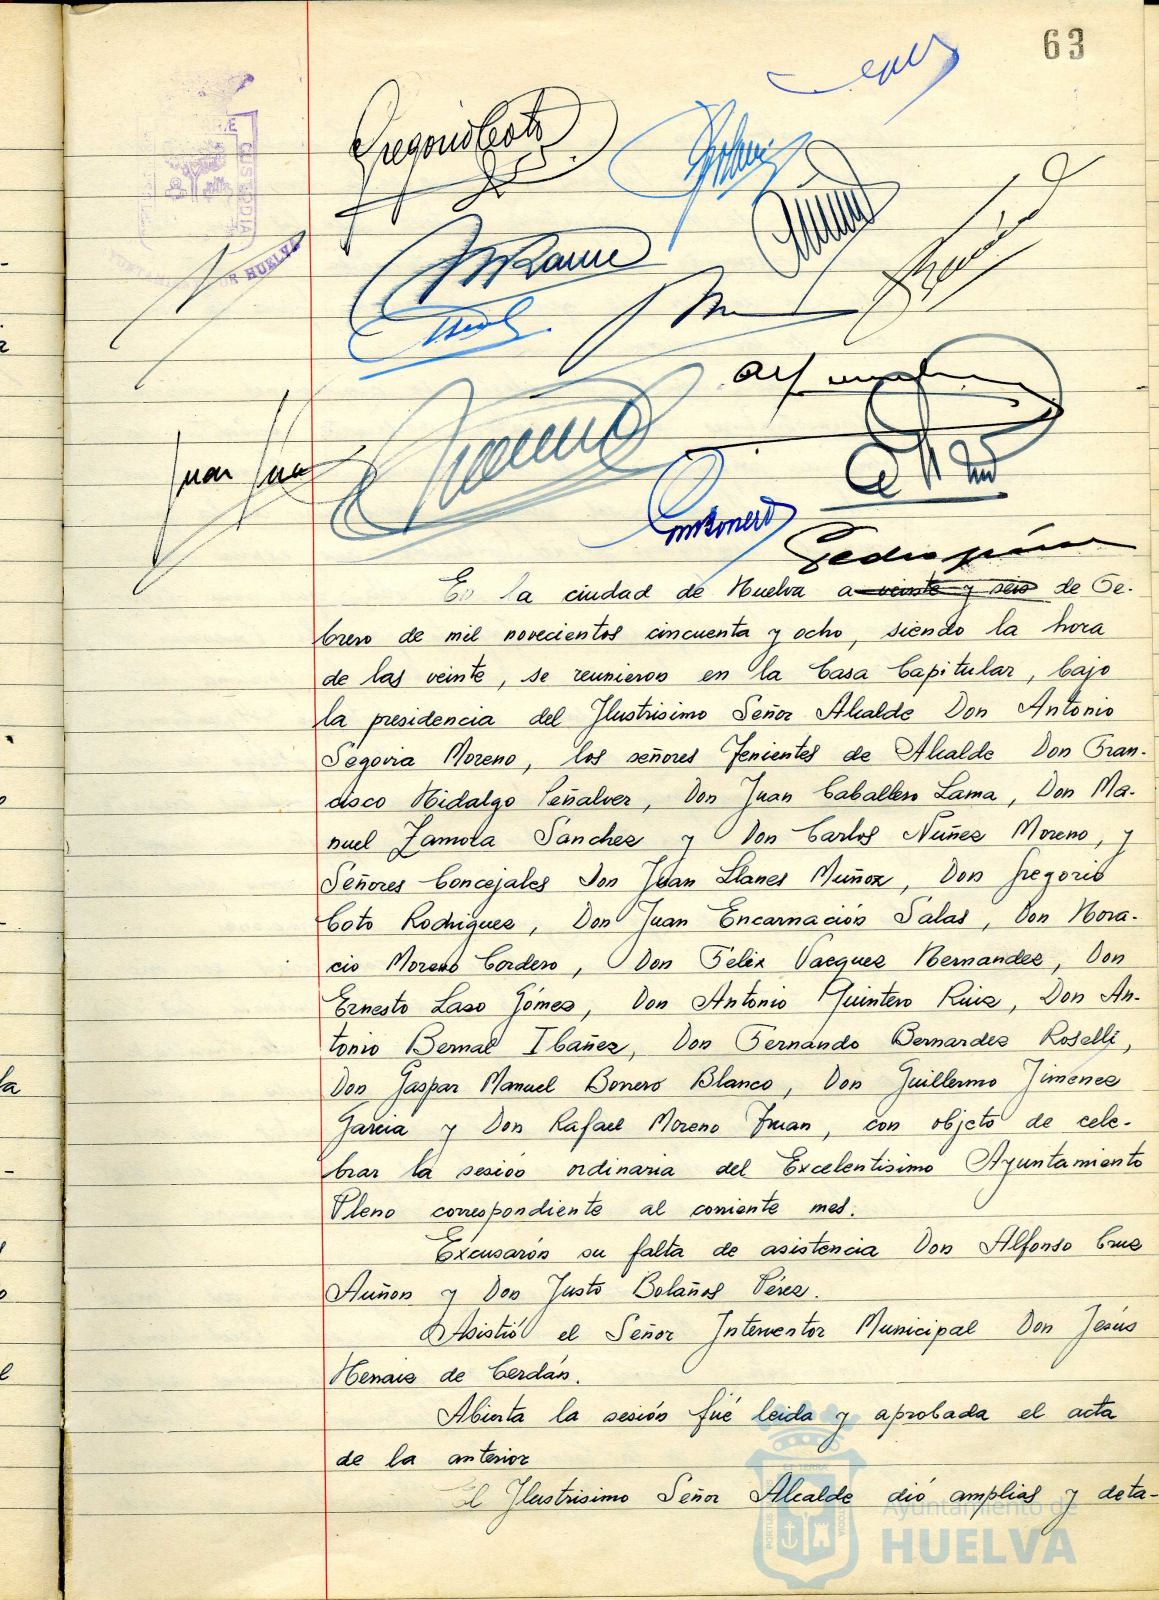 63
Gregorio Coto
HUELVA
Juan
En la ciudad de Huelva a veinte y seis de Fe-
brero de mil novecientos cincuenta y ocho, siendo la hora
de las veinte, se reunieron en la Casa Capitular, bajo
la presidencia del Ilustrisimo Señor Alcalde Don Antonio
Segovia Moreno, los señores Tenientes de Alcalde Don Fran-
cisco Hidalgo Peñalver, Don Juan Caballero Lama, Don Ma-
nuel Zamora Sanchez y Don Carlos Nuñez Moreno, y
Señores Concejales Don Juan Llanes Muñoz, Don Gregorio
Coto Rodriguez, Don Juan Encarnación Salas, Don Hora-
cio Moreno Cordero, Don Felix Vazquez Hernandez, Don
Ernesto Laso Gómez, Don Antonio Quintero Ruiz, Don An-
tonio Bernal Ibañez, Don Fernando Bernardez Roselli,
Don Gaspar Manuel Borrero Blanco, Don Guillermo Jimenez
Garcia y Don Rafael Moreno Inian, con objeto de cele-
brar la sesion ordinaria del Excelentisimo Ayuntamiento
Pleno correspondiente al corriente mes.
Excusarón su falta de asistencia Don Alfonso Cruz
Auñon y Don Justo Bolaños Pérez.
Asistió el Señor Interventor Municipal Don Jesús
Henaiz de Cerdán.
Abierta la sesión fué leida y aprobada el acta
de la anterior
El Ilustrisimo Señor Alcalde dió amplias y deta-
Ayuntamiento de
HUELVA